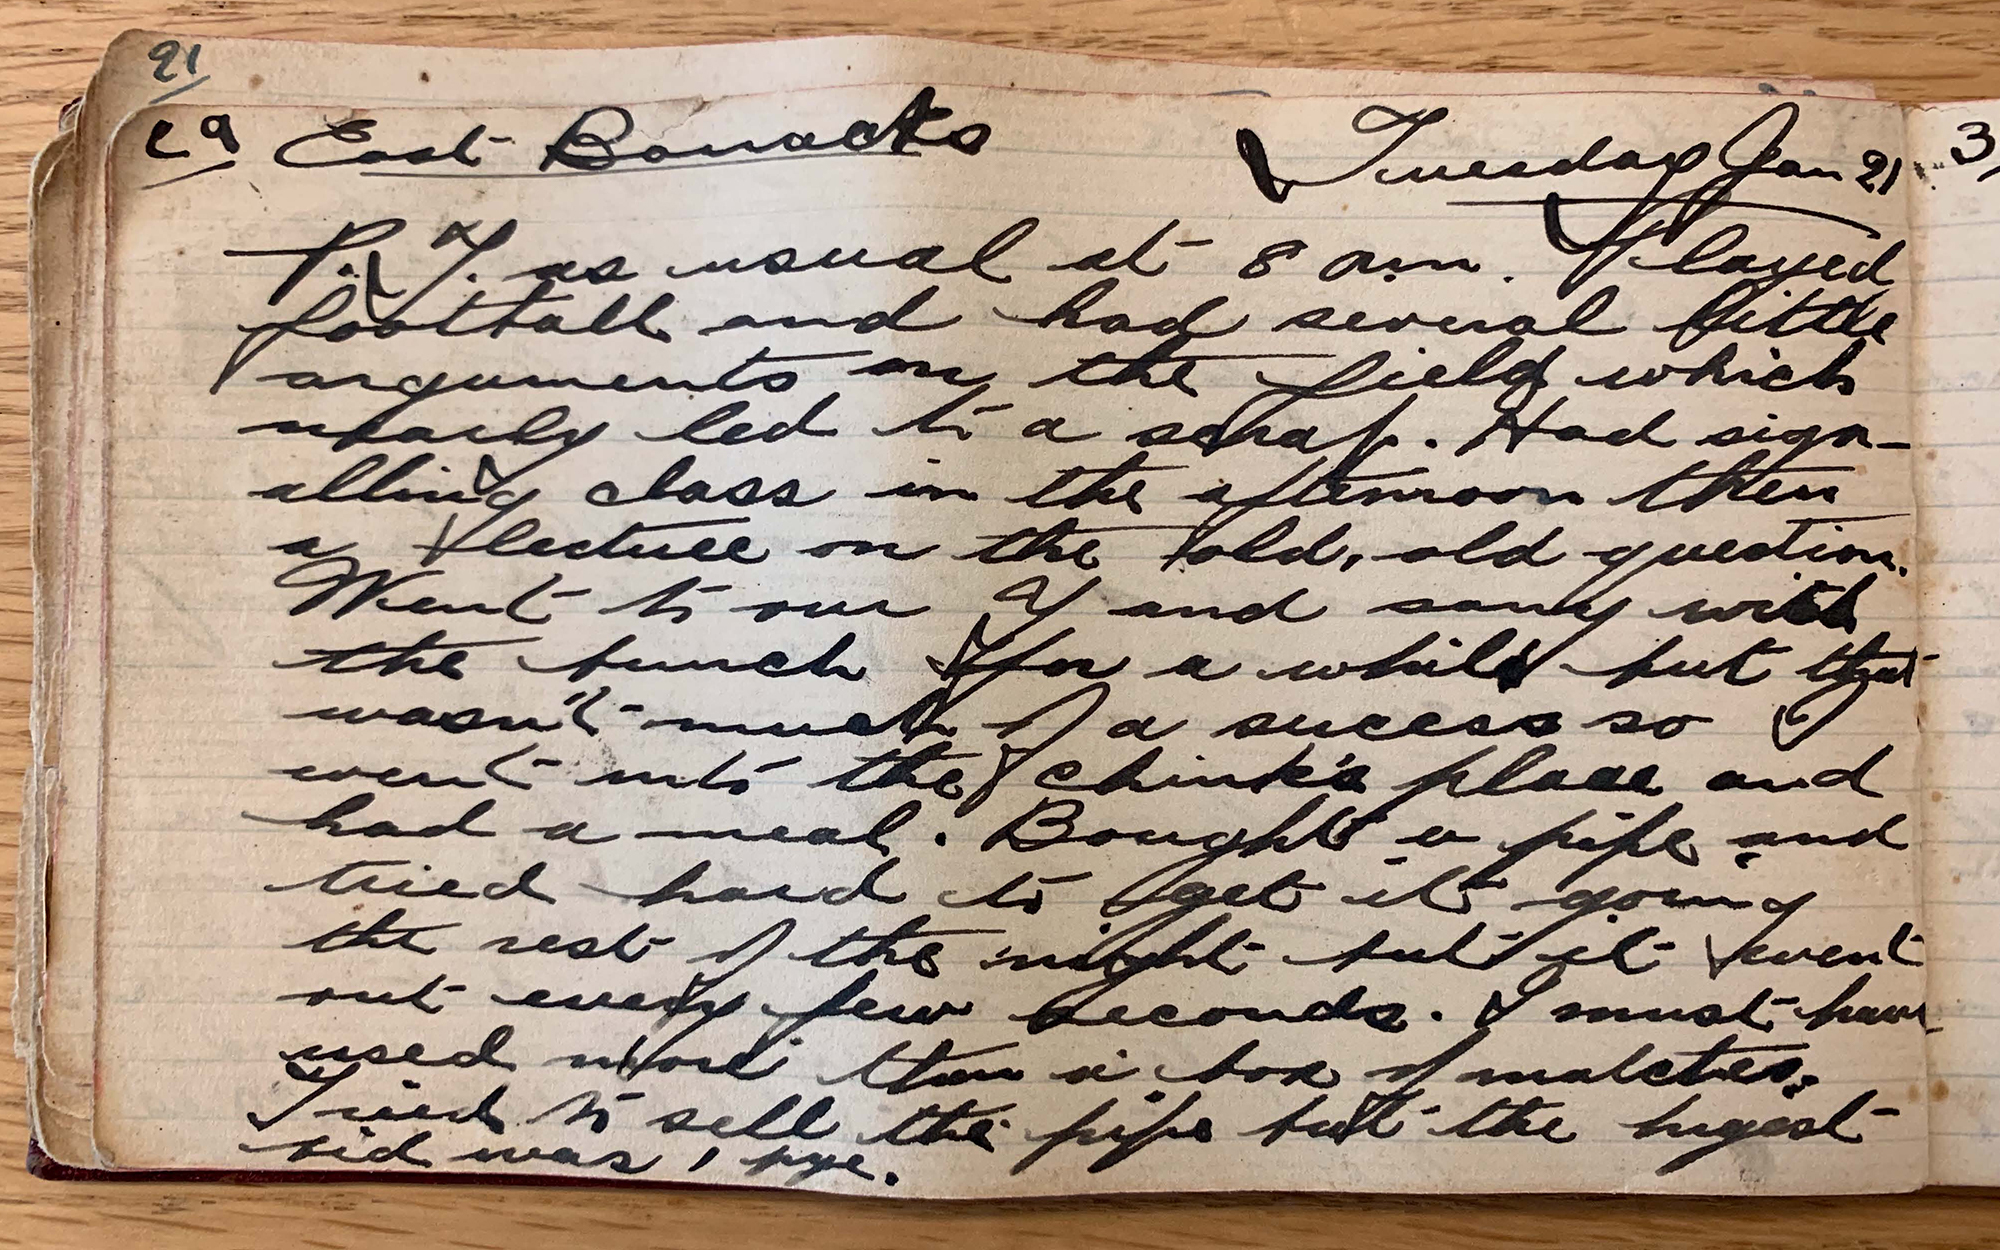 21
29 East Barracks Tuesday Jan 21
3
P. T. as usual at 8 a.m. Played
football and had several little
arguments on the field which
nearly led to a scrap. Had sign-
alling class in the afternoon then
a lecture on the old, old question.
Went to our Y and sang with
the bunch for a while but that
wasn't much of a sucess so
went into the chink's place and
had a meal. Bought a pipe and
tried hard to get it going
the rest of the night but it went
out every few seconds. I must have
used more than a box of matches.
Tried to sell the pipe but the higest
bid was 1